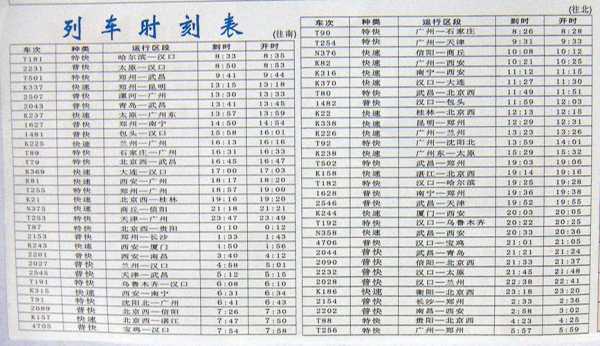 列车时刻表 (往南)
车次 种类 运行区段 到时 开时
T181 特快 哈尔滨—汉口 8:33 8:35
2231 普快 太原—汉口 8:50 8:53
T501 特快 郑州—武昌 9:41 9:44
K337 快速 郑州—昆明 13:15 13:18
2507 普快 漯河—广州 13:30 13:33
2043 普快 青岛—武昌 13:41 13:45
K237 快速 太原—广州东 13:57 13:59
1627 普快 郑州—南宁 14:50 14:54
1481 普快 包头—汉口 15:58 16:01
K225 快速 兰州—广州 16:13 16:16
T89 特快 石家庄—广州 16:31 16:33
T79 特快 北京西—武昌 16:45 16:47
K369 快速 大连—汉口 17:00 17:03
K81 快速 西安—广州 18:17 18:20
T255 特快 郑州—广州 18:57 19:00
K21 快速 北京西—桂林 19:16 19:20
N375 快速 商丘—信阳 21:18 21:21
T253 特快 天津—广州 23:47 23:49
T87 特快 北京西—贵阳 0:10 0:12
2153 普快 郑州—长沙 1:33 1:43
K243 快速 西安—厦门 1:50 1:56
2201 普快 西安—南昌 3:40 4:12
2027 普快 兰州—汉口 4:58 5:01
2545 普快 天津—武昌 5:12 5:15
T191 特快 乌鲁木齐—汉口 6:08 6:10
K315 快速 西安—南宁 6:31 6:34
T91 特快 沈阳北—广州 6:41 6:43
2089 普快 北京西—信阳 7:26 7:30
K157 快速 北京西—湛江 7:47 7:50
4705 普快 宝鸡—汉口 7:54 7:58
(往北)
车次 种类 运行区段 到时 开时
T90 特快 广州—石家庄 8:26 8:28
T254 特快 广州—天津 9:31 9:33
N376 快速 信阳—商丘 10:08 10:12
K82 快速 广州—西安 10:21 10:25
K316 快速 南宁—西安 11:12 11:15
K370 快速 汉口—大连 11:27 11:30
T80 特快 武昌—北京西 11:49 11:51
1482 普快 汉口—包头 11:59 12:03
K22 快速 桂林—北京西 12:10 12:13
K338 快速 昆明—郑州 12:29 12:31
K226 快速 广州—兰州 13:23 13:26
T92 特快 广州—沈阳北 13:59 14:01
K238 快速 广州东—太原 15:29 15:32
T502 特快 武昌—郑州 19:03 19:06
K158 快速 湛江—北京西 19:14 19:16
T182 特快 汉口—哈尔滨 19:25 19:28
1628 普快 南宁—郑州 19:36 19:38
2546 普快 武昌—天津 19:52 19:55
K244 快速 厦门—西安 20:03 20:05
T192 特快 汉口—乌鲁木齐 20:22 20:25
N358 快速 武昌—西安 20:33 20:36
4706 普快 汉口—宝鸡 21:01 21:05
2044 普快 武昌—青岛 21:21 21:24
2090 普快 信阳—北京西 21:33 21:37
2232 普快 汉口—太原 21:45 21:48
2028 普快 汉口—兰州 22:38 22:41
K186 快速 衡阳—北京西 23:18 23:20
2154 普快 长沙—郑州 2:33 2:36
2202 普快 南昌—西安 2:58 3:02
T88 特快 贵阳—北京西 4:23 4:25
T256 特快 广州—郑州 5:57 5:59